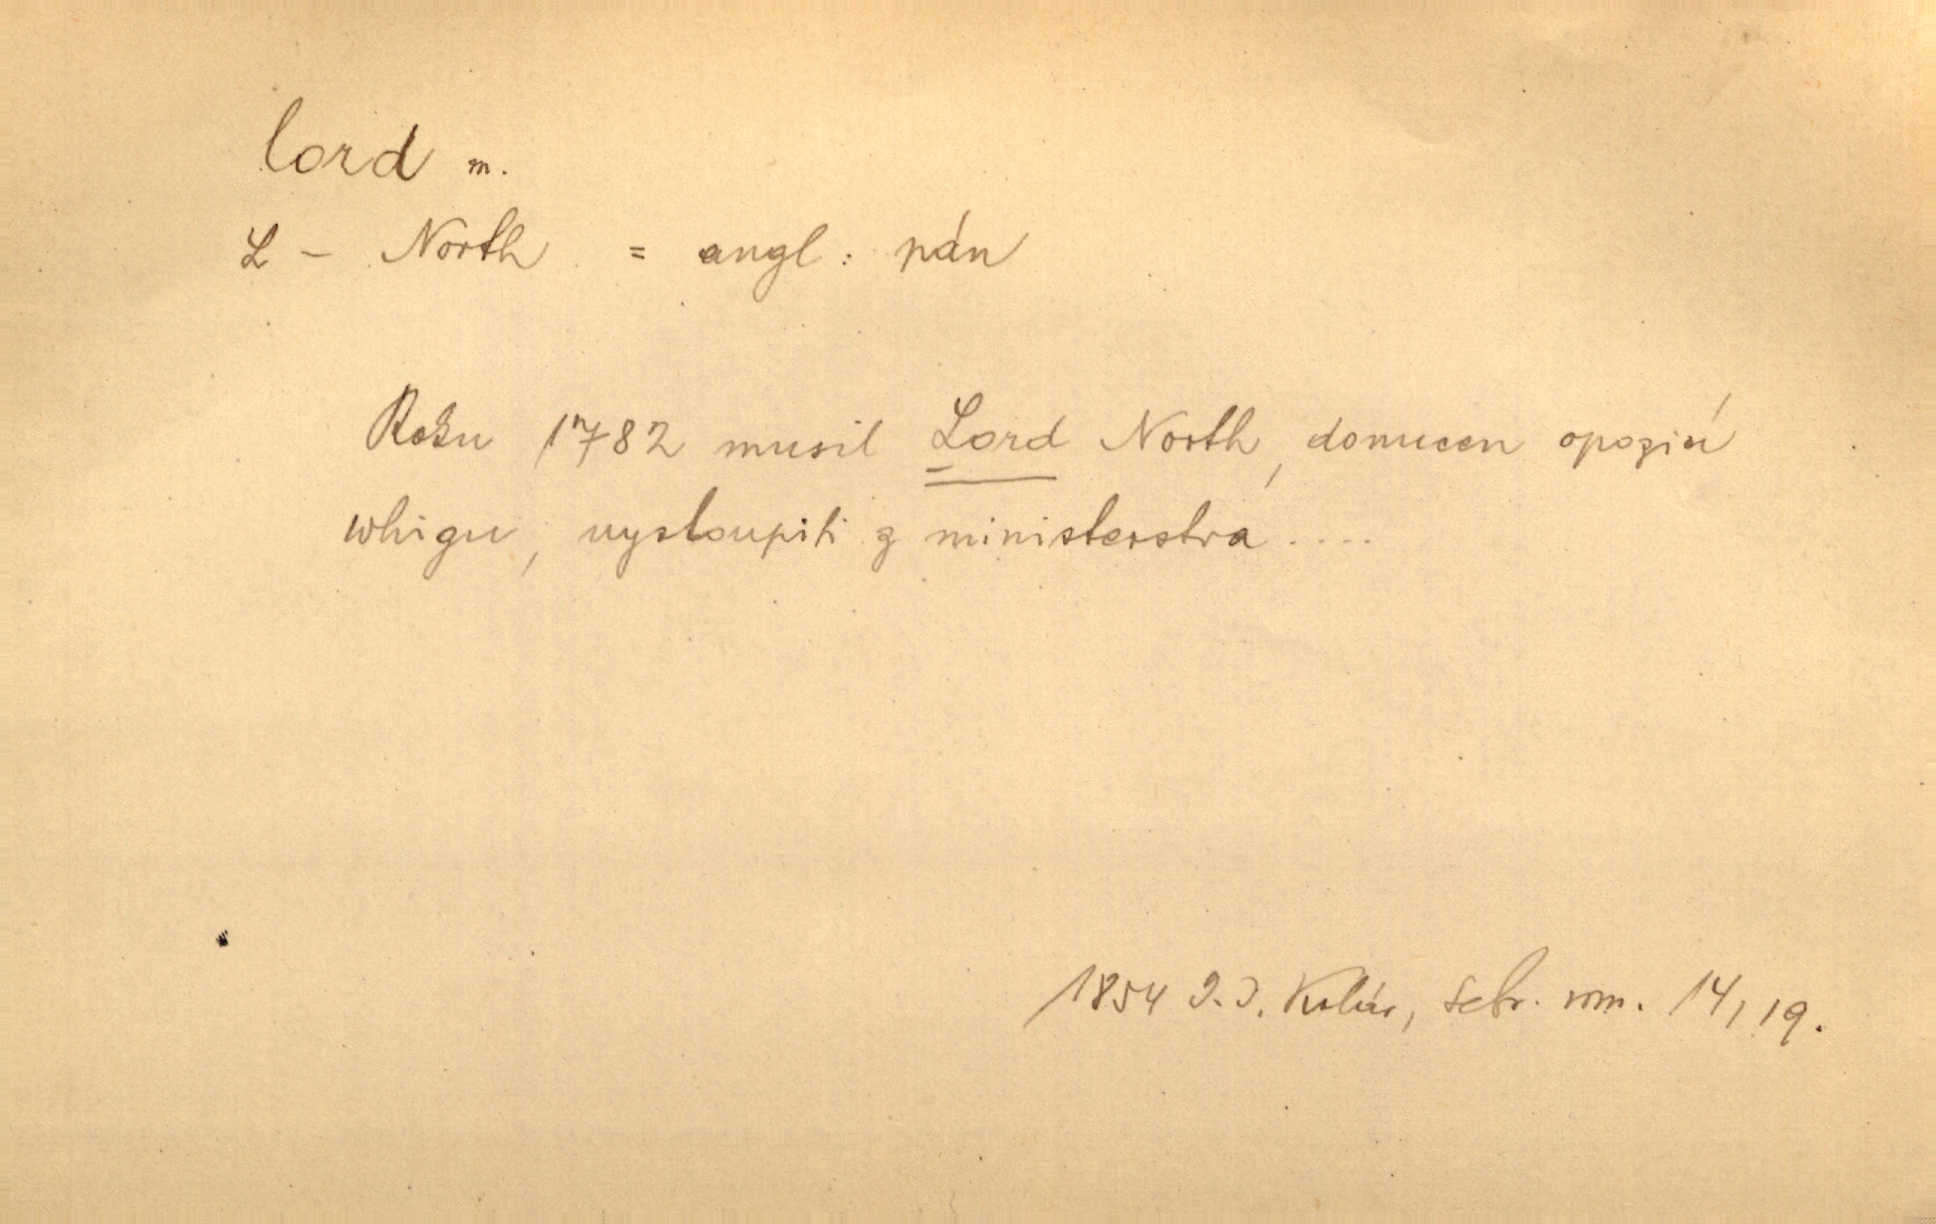 lord m.
L – North = angl: pán
Roku 1782 musil Lord North, donucen opozicí
whigů, vystoupiti z ministerstva ....
1854 J.J. Kolár, sebr. rom. 14, 19.